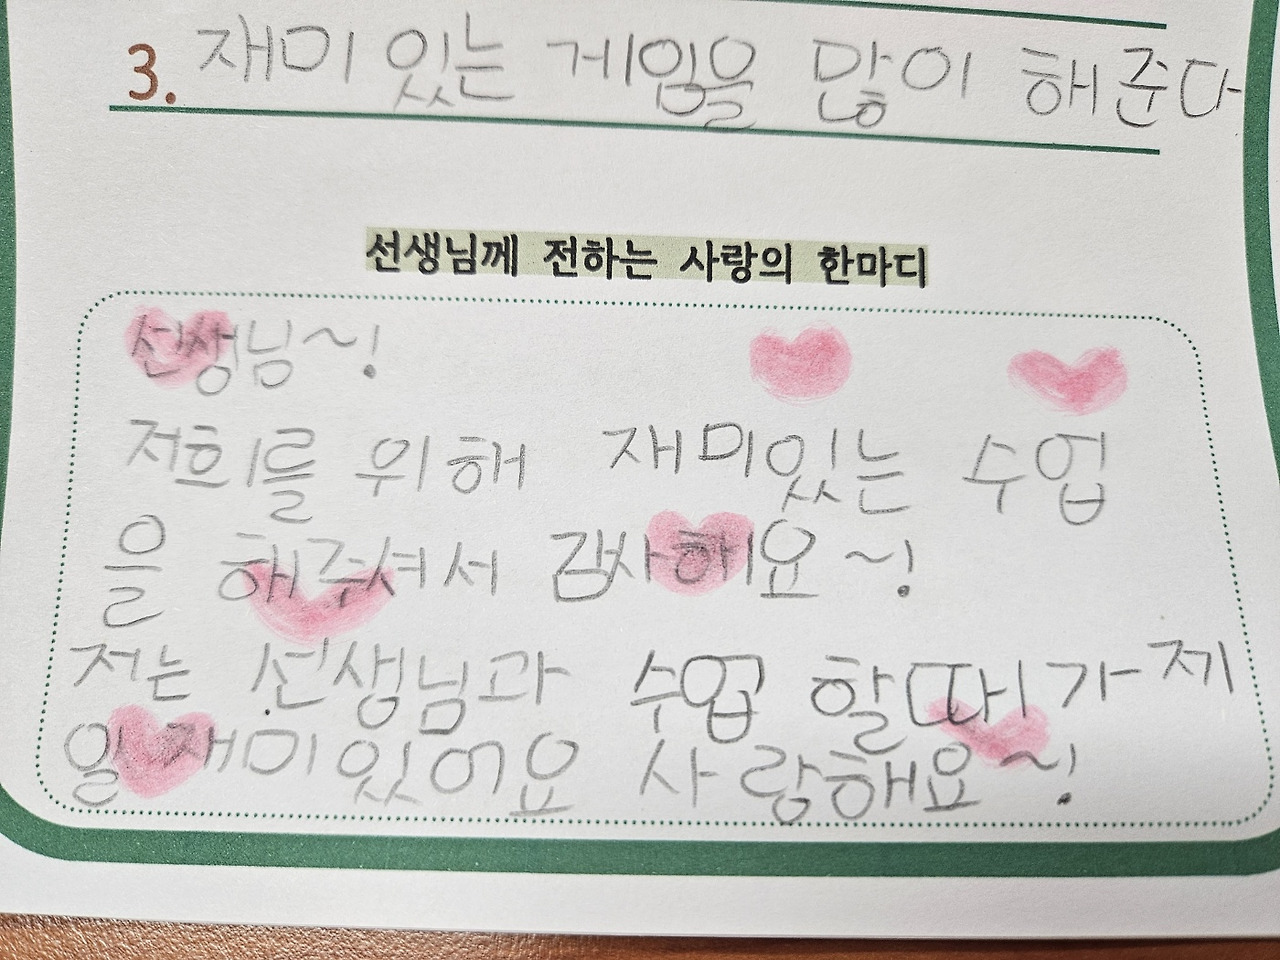 3. 재미있는 게임을 많이 해준다
선생님께 전하는 사랑의 한마디
선생님~!
저희를 위해 재미있는 수업
을 해주셔서 감사해요~!
저는 선생님과 수업 할때가 제
일 재미있어요 사랑해요~!